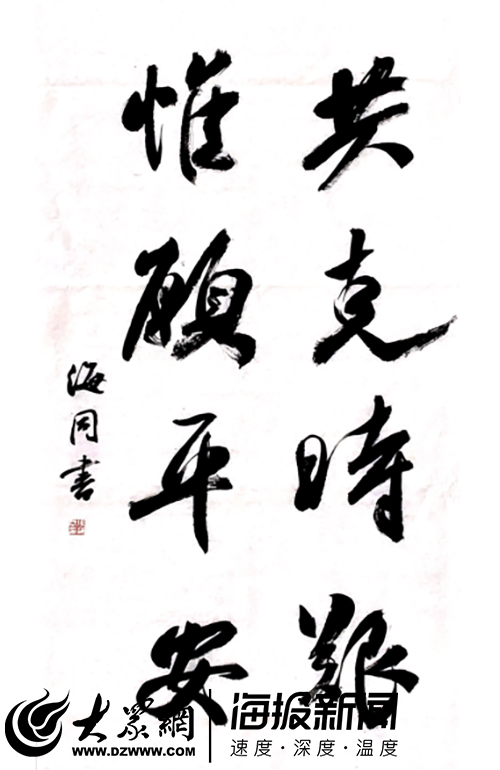 共克時艱
惟願平安
海同書
大眾網
www.DZWWW.com
海报新闻
速度·深度·温度